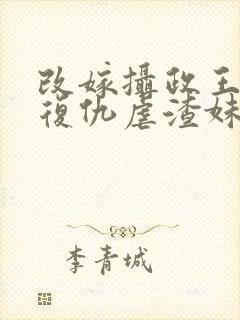 改嫁攝政王
復仇虐渣妹
李青城